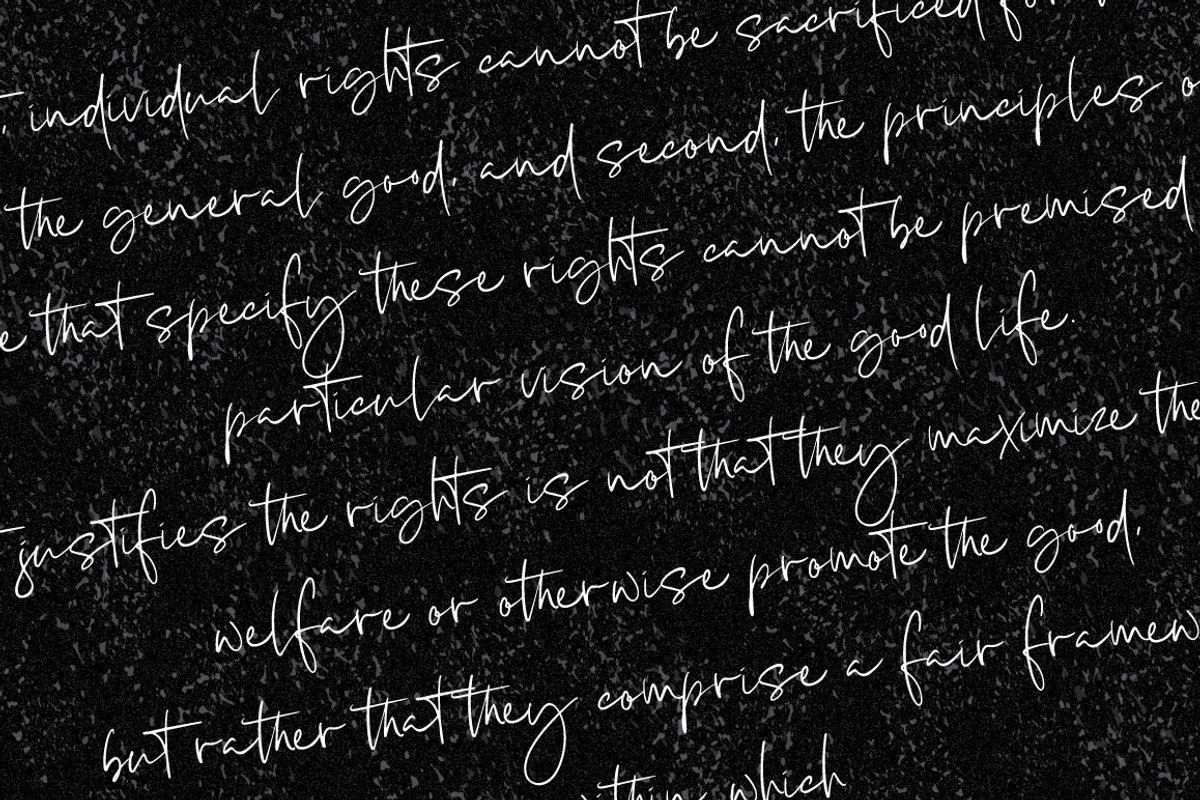 individual rights cannot be sacrificed for
the general good, and second, the principles
that specify these rights cannot be premised
particular vision of the good life.
justifies the rights is not that they maximize the
welfare or otherwise promote the good,
but rather that they comprise a fair
within which